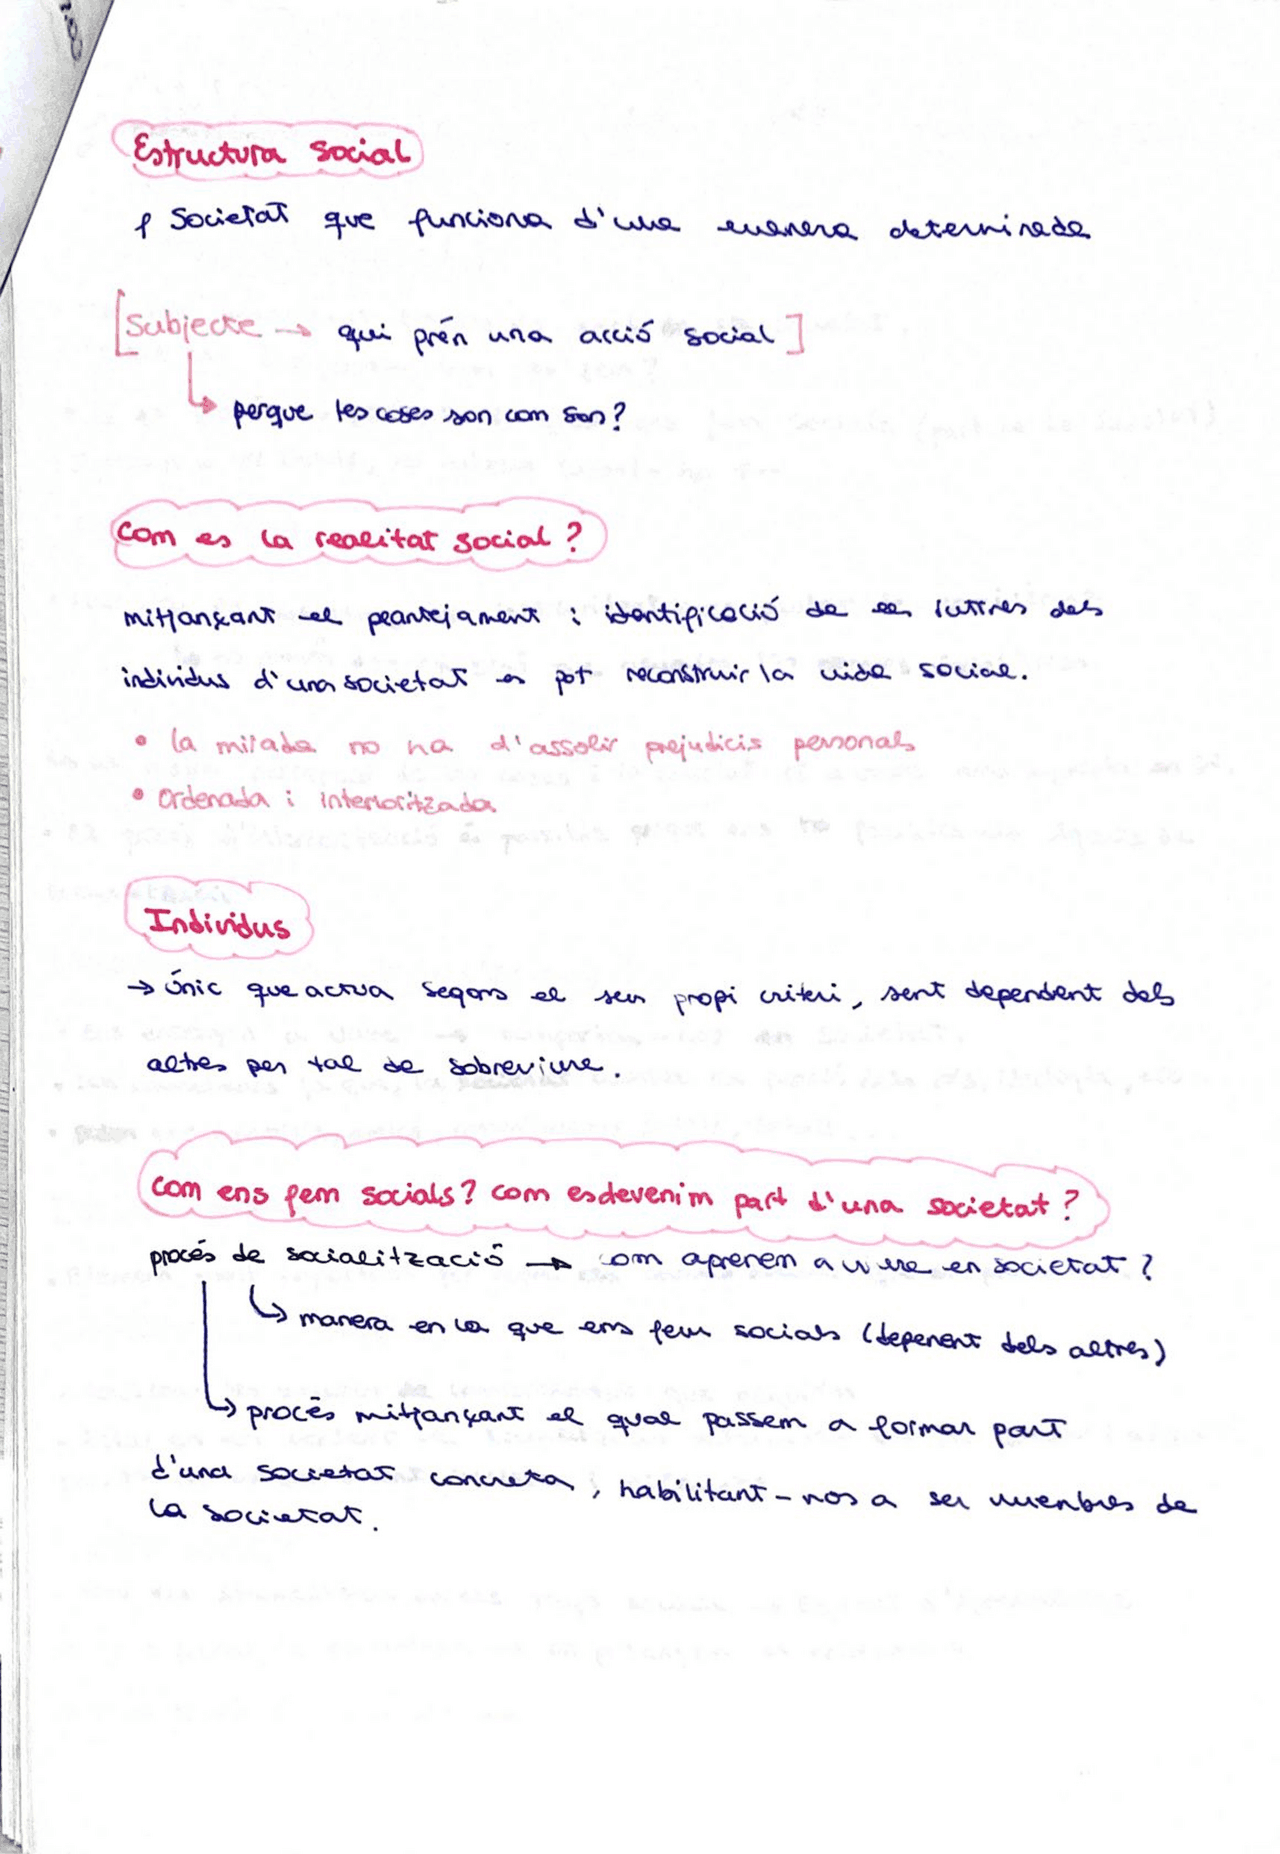 Estructura Social
Societat que funciona d'una manera determinada
[Subjecte → qui prén una acció social]
↳ perque les coses son com son?
Com es la realitat social?
mitjançant el plantejament i identificació de les rutines dels
individus d'una societat es pot reconstruir la vida social.
• la mirada no ha d'assolir prejudicis personals
• Ordenada i interioritzada
Individus
→ únic que actua segons el seu propi criteri, sent dependent dels
altres per tal de sobreviure.
Com ens fem socials? com esdevenim part d'una societat?
procés de socialització → com aprenem a viure en societat?
↳ manera en la que ens fem socials (depenent dels altres)
↳ procés mitjançant el qual passem a formar part
d'una societat concreta, habilitant-nos a ser membres de
la societat.